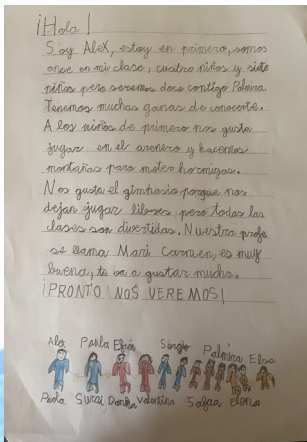 ¡Hola!
Soy Alex, estoy en primero, somos
once en mi clase, cuatro niños y siete
niñas pero seremos doce contigo Palmira.
Tenemos muchas ganas de conocerte.
A los niños de primero nos gusta
jugar en el arenero y hacemos
montañas para meter hormigas.
Nos gusta el gimnasio porque nos
dejan jugar libres, pero todas las
clases son divertidas. Nuestra profe
se llama Mari Carmen, es muy
buena, te va a gustar mucho.
¡PRONTO NOS VEREMOS!
Alex Paula Sergio Palmira Elsa
Paola Surai Valentina Safaa Elena